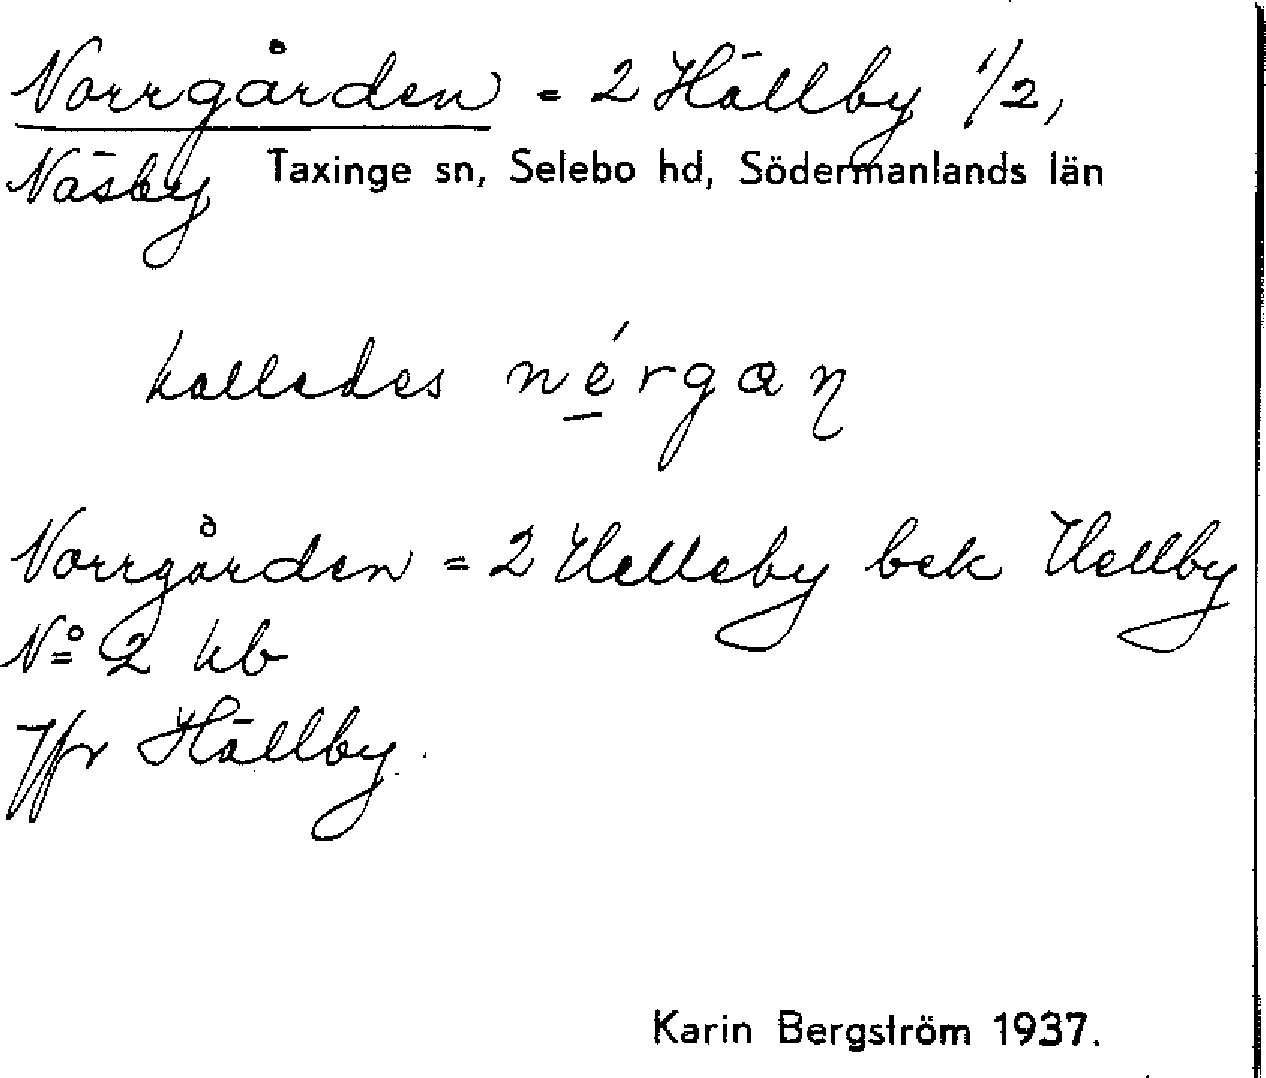 Norrgården = 2 Hällby 1/2,
Näsby Taxinge sn, Selebo hd, Södermanlands län
kallades
Norrgården = 2 Helleby bek Hellby
No 2 kb
Jfr Hällby.
Karin Bergström 1937.